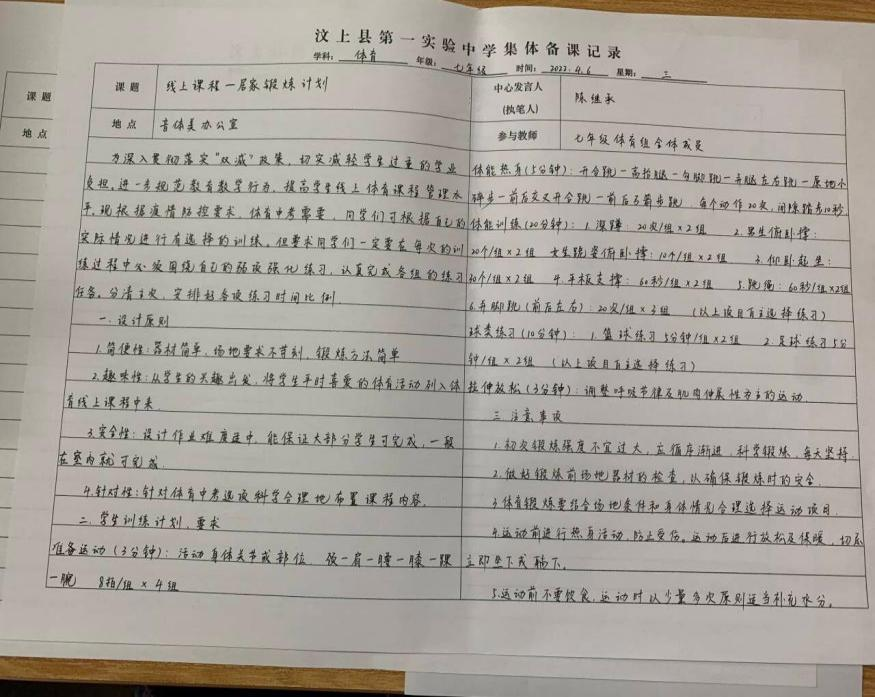 汶上县第一实验中学集体备课记录
学科: 体育 年级: 七年级 时间: 2022.4.6 星期: 三
课题 线上课程—居家锻炼计划 中心发言人(执笔人) 陈继承
地点 音体美办公室 参与教师 七年级体育组全体成员
为深入贯彻落实“双减”政策,切实减轻学生过重的学业
负担,进一步规范教育教学行为,提高学生线上体育课程管理水
平,现根据疫情防控要求,体育中考需要,同学们可根据自己的
实际情况进行有选择的训练。但要求同学们一定要在每次的训
练过程中必须围绕自己的弱项强化练习,认真完成各组的练习
任务。分清主次,安排好各项练习时间比例.
一.设计原则
1.简便性:器材简单,场地要求不苛刻,锻炼方法简单
2.趣味性:从学生的兴趣出发,将学生平时喜爱的体育活动列入体
育线上课程中来.
3.安全性:设计作业难度适中,能保证大部分学生可完成,一般
在室内就可完成.
4.针对性:针对体育中考选项科学合理地布置课程内容.
二.学生训练计划.要求
准备运动(3分钟):活动身体关节或部位 颈—肩—腰—膝—踝
—腕 8拍/组×4组
体能热身(5分钟):开合跳—高抬腿—勾脚跳—并腿左右跳—原地小
碎步—前后交叉开合跳—前后弓箭步跳 每个动作20次,间隙踏步10秒.
体能训练(20分钟):1.深蹲:20次/组×2组 2.男生俯卧撑:
20个/组×2组 女生跪姿俯卧撑:10个/组×2组 3.仰卧起坐:
30个/组×2组 4.平板支撑:60秒/组×2组 5.跳绳:60秒/组×2组
6.并脚跳(前后左右):20次/组×3组 (以上项目自主选择练习)
球类练习(10分钟):1.篮球练习5分钟/组×2组 2.足球练习5分
钟/组×2组 (以上项目自主选择练习)
拉伸放松(3分钟):调整呼吸节律及肌肉伸展性为主的运动.
三.注意事项
1.初次锻炼强度不宜过大,应循序渐进,科学锻炼,每天坚持.
2.做好锻炼前场地器材的检查,以确保锻炼时的安全.
3.体育锻炼要结合场地条件和身体情况合理选择运动项目.
4.运动前进行热身活动,防止受伤。运动后进行放松及保暖,切忌
立即坐下或躺下。
5.运动前不要饮食,运动时以少量多次原则适当补充水分。
课题
地点